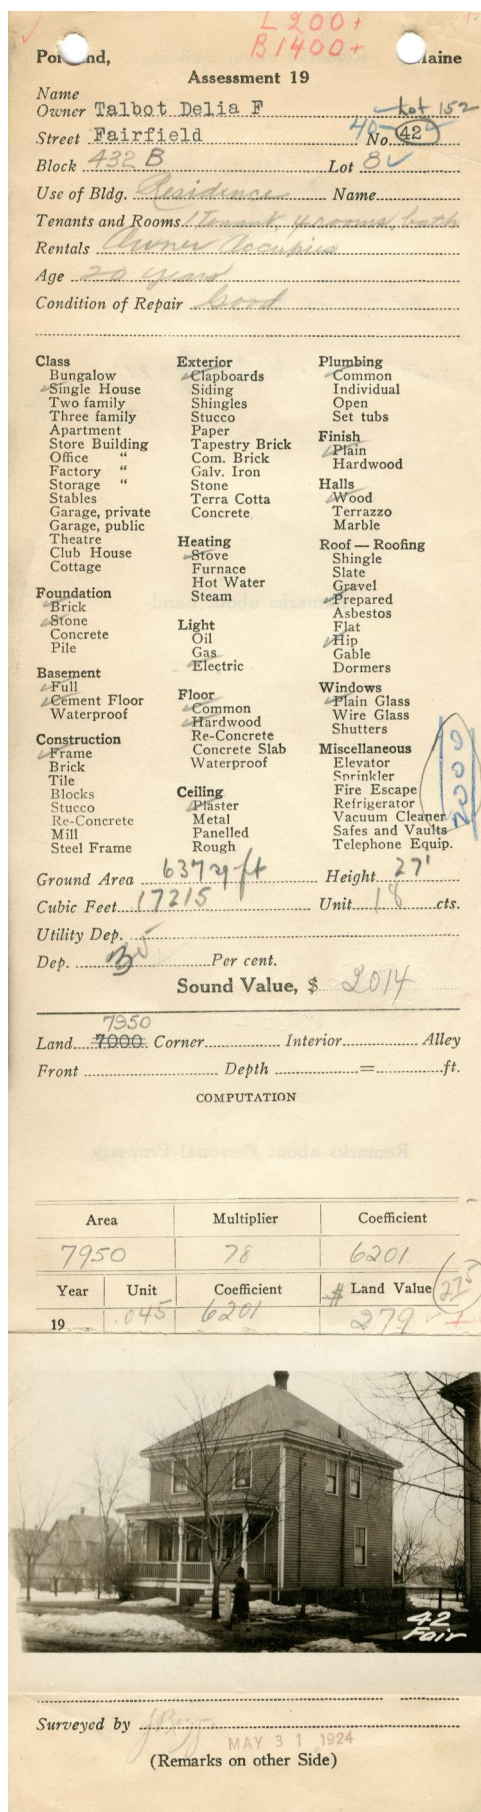 L 200+
B 1400+
Portland, Maine
Assessment 19
Name
Owner Talbot Delia F Lot 152
Street Fairfield 40- No. 42
Block 432 B Lot 8
Use of Bldg. Residence Name
Tenants and Rooms 1 Tenant, 4 rooms, bath
Rentals Owner Occupies
Age 20 years
Condition of Repair Good
Class
Bungalow
Single House
Two family
Three family
Apartment
Store Building
Office "
Factory "
Storage "
Stables
Garage, private
Garage, public
Theatre
Club House
Cottage
Foundation
Brick
Stone
Concrete
Pile
Basement
Full
Cement Floor
Waterproof
Construction
Frame
Brick
Tile
Blocks
Stucco
Re-Concrete
Mill
Steel Frame
Exterior
Clapboards
Siding
Shingles
Stucco
Paper
Tapestry Brick
Com. Brick
Galv. Iron
Stone
Terra Cotta
Concrete
Heating
Stove
Furnace
Hot Water
Steam
Light
Oil
Gas
Electric
Floor
Common
Hardwood
Re-Concrete
Concrete Slab
Waterproof
Ceiling
Plaster
Metal
Panelled
Rough
Plumbing
Common
Individual
Open
Set tubs
Finish
Plain
Hardwood
Halls
Wood
Terrazzo
Marble
Roof — Roofing
Shingle
Slate
Gravel
Prepared
Asbestos
Flat
Hip
Gable
Dormers
Windows
Plain Glass
Wire Glass
Shutters
Miscellaneous
Elevator
Sprinkler
Fire Escape
Refrigerator
Vacuum Cleaner
Safes and Vaults
Telephone Equip.
2000
Ground Area 637 sq ft Height 27'
Cubic Feet 17215 Unit 18 cts.
Utility Dep.
Dep. 35 Per cent.
Sound Value, $ 2014
7950
Land 7000 Corner Interior Alley
Front Depth = ft.
COMPUTATION
Remarks about Personal Property
Area Multiplier Coefficient
7950 78 6201
Year Unit Coefficient # Land Value 275
19 .045 6201 279
42
Fair
Surveyed by
MAY 31 1924
(Remarks on other Side)